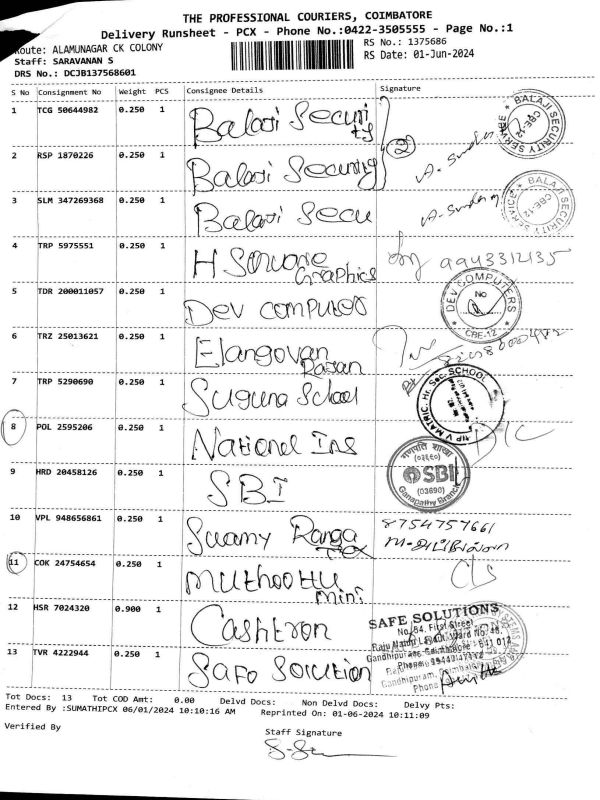 THE PROFESSIONAL COURIERS, COIMBATORE
Delivery Runsheet - PCX - Phone No.:0422-3505555 - Page No.:1
Route: ALAMUNAGAR CK COLONY
RS No.: 1375686
Staff: SARAVANAN S
RS Date: 01-Jun-2024
DRS No.: DCJB137568601
S No Consignment No Weight PCS Consignee Details Signature
1 TCG 50644982 0.250 1 Balaji Security
BALAJI SECURITY SERVICE CBE-12
2 RSP 1870226 0.250 1 Balaji Security
2
3 SLM 347269368 0.250 1 Balaji Secu
BALAJI SECURITY SERVICE CBE-12
4 TRP 5975551 0.250 1 H Square Graphics 9943312135
5 TDR 200011057 0.250 1 Dev computer
DEV COMPUTERS No CBE-12
6 TRZ 25013621 0.250 1 Elangovan Rajan
7 TRP 5290690 0.250 1 Suguna School
V MATRIC. Hr. Sec. SCHOOL
8 POL 2595206 1 National Ins D/C
9 HRD 20458126 0.250 1 SBI
गणपति शाखा
(०३६९०)
SBI
(03690)
Ganapathy Branch
10 VPL 948656861 0.250 1 Swamy Ranga Tex 8754757661
11 COK 24754654 0.250 1 Muthoottu mini C/S
12 HSR 7024320 0.900 1 Cashtron
SAFE SOLUTIONS
No.84, First Street,
13 TVR 4222944 0.250 1 Safo Solution
Tot Docs: 13 Tot COD Amt: 0.00 Delvd Docs: Non Delvd Docs: Delvy Pts:
Entered By :SUMATHIPCX 06/01/2024 10:10:16 AM Reprinted On: 01-06-2024 10:11:09
Verified By
Staff Signature